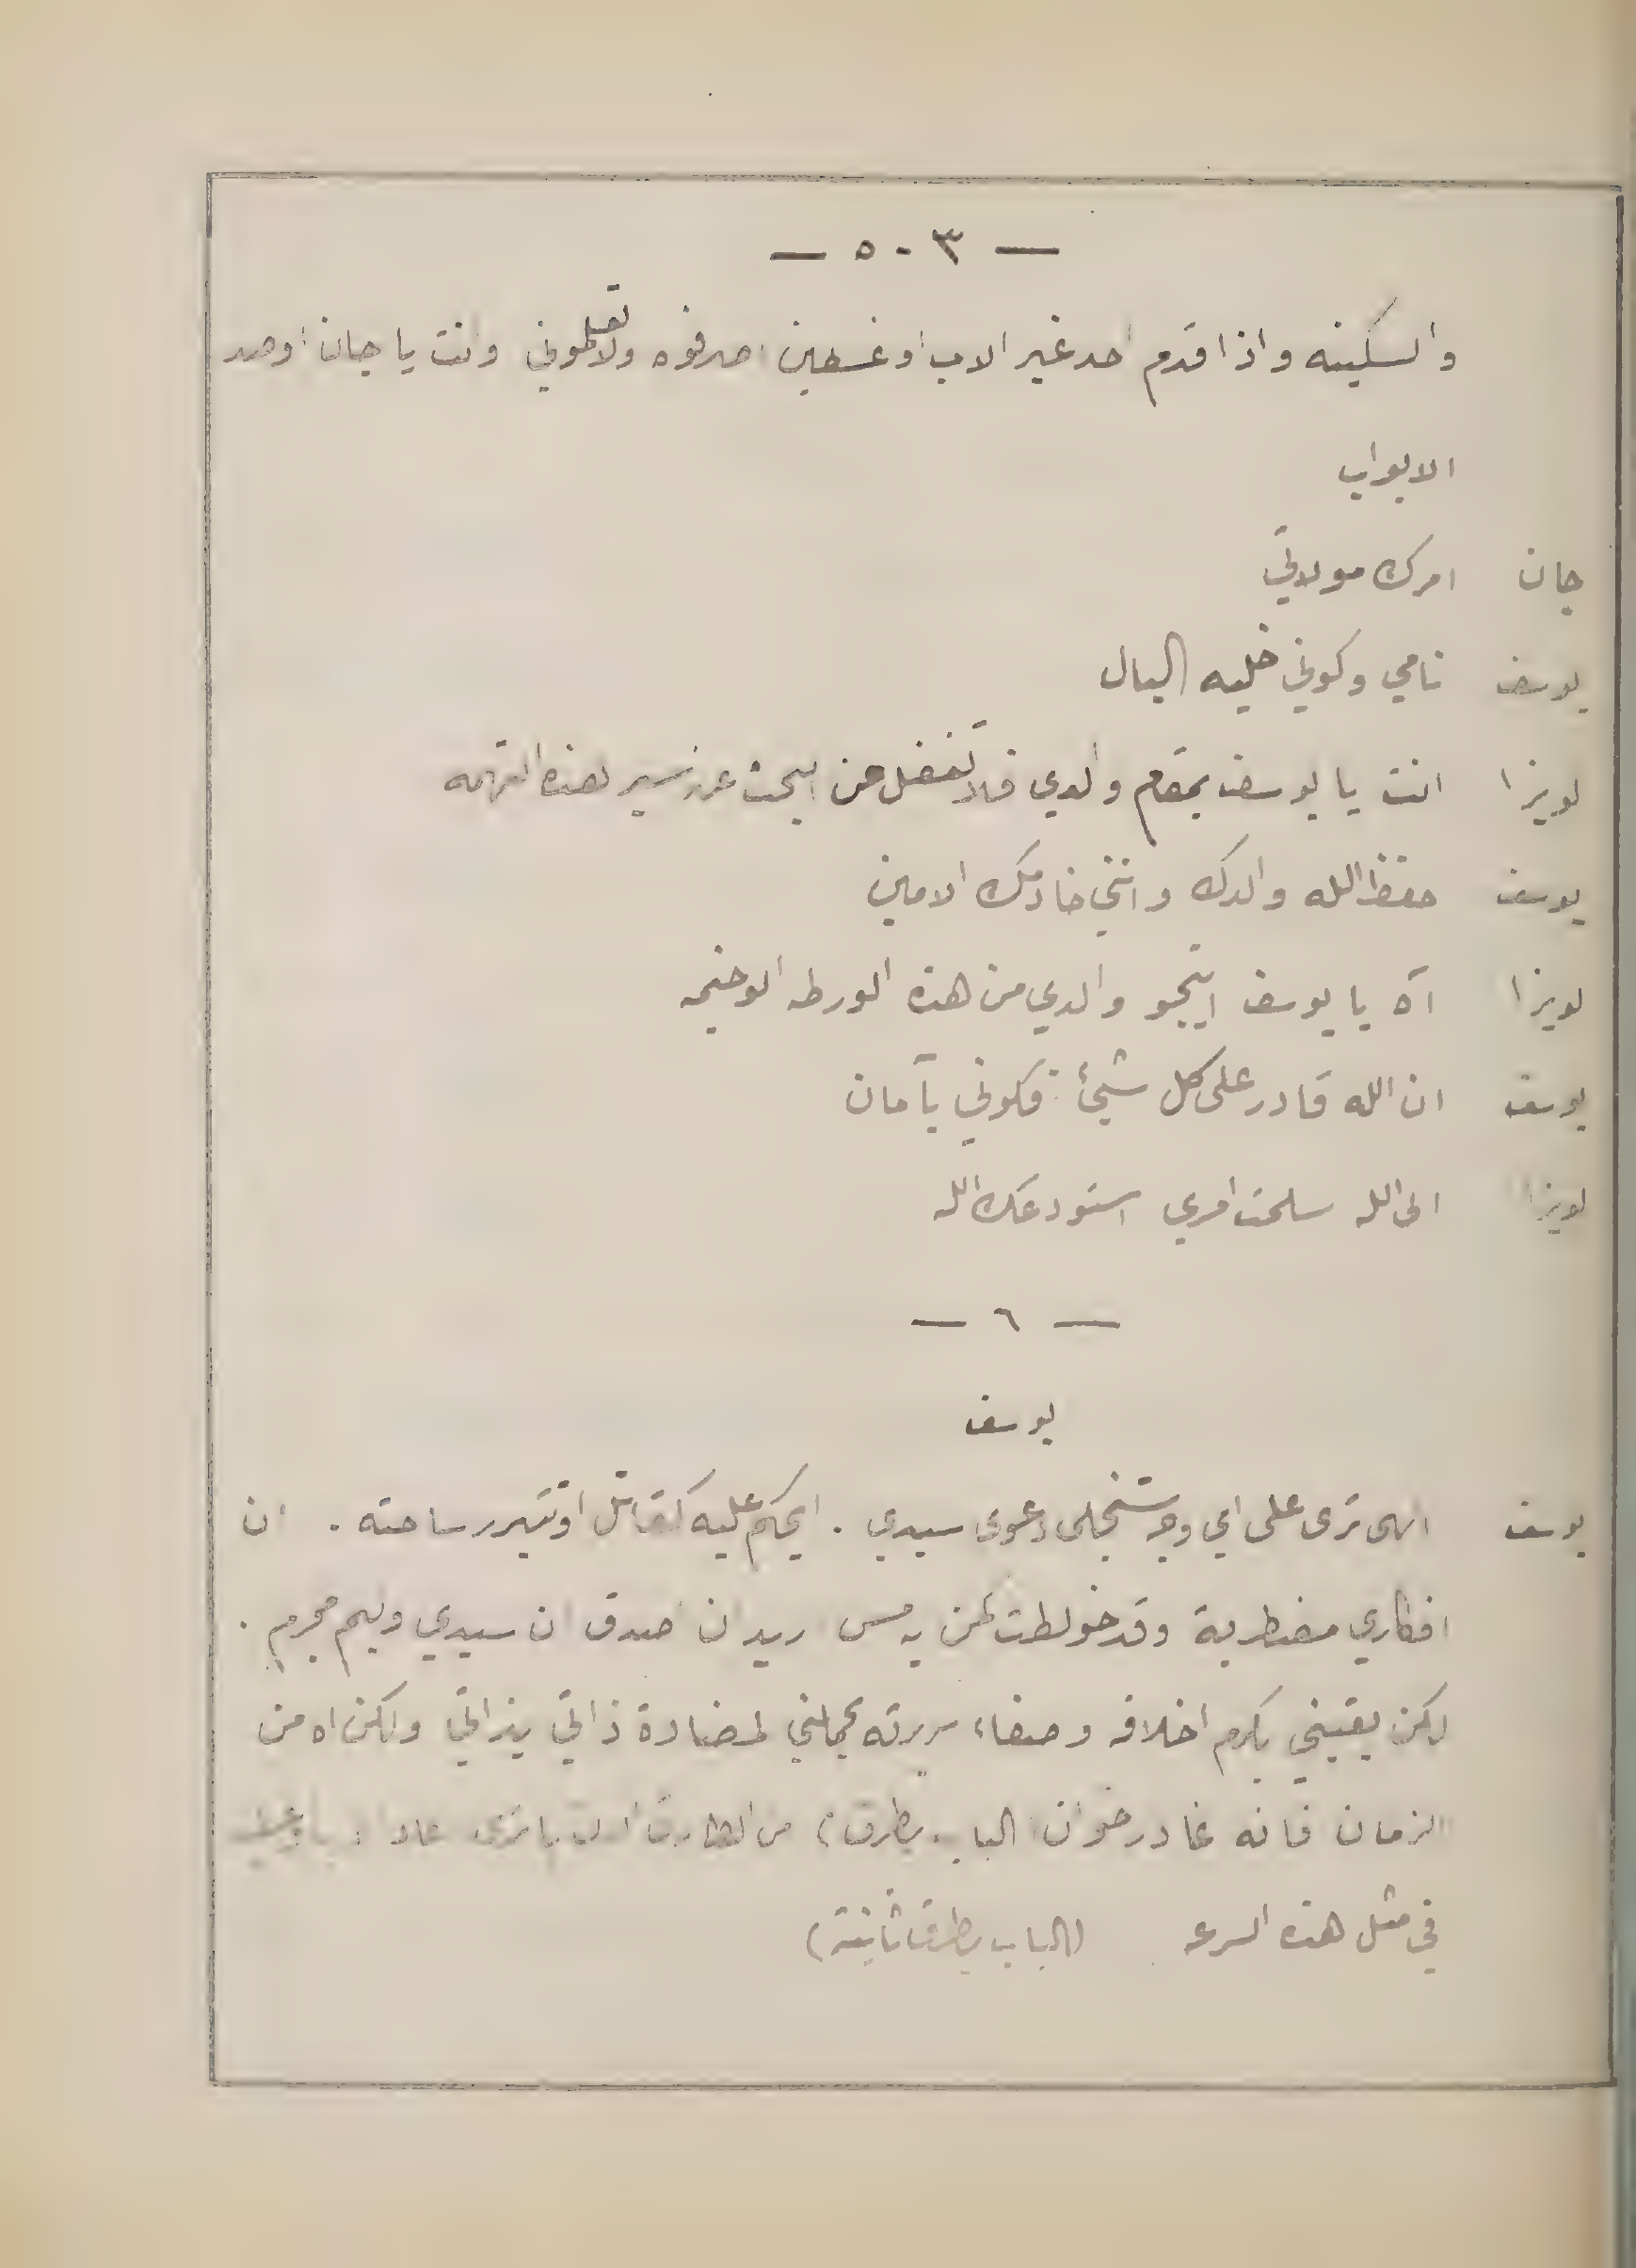 — ٥٠٣ —
والسكينه واذا قدم احد غير الاب اوغسطين اصرفوه ولا تعلموني وانت يا جان اوصد
الابواب
جان امرك مولاتي
يوسف نامي وكوني خليه البال
لويزا انت يا يوسف بمقام والدي فلا تغفل عن البحث عن سير هذه التهمه
يوسف حفظ الله والدك وانني خادمك الامين
لويزا آه يا يوسف اينجو والدي من هذه الورطه الوخيمه
يوسف ان الله قادر على كل شيئ فكوني بآمان
لويزا الى الله سلمت امري استودعك الله
— ٦ —
يوسف
يوسف الهى ترى على اي وجه ستنجلى دعوى سيدي . ايحكم عليه كقاتل او تتبرر ساحته . ان
افكاري مضطربة وقد خولطت كمن به مس اريد ان اصدق ان سيدي وليم مجرم .
لكن يقيني بكرم اخلاقه وصفاء سريرته يحملني لمضادة ذاتي بذاتي ولكن اه من
الزمان فانه غادر خوان الباب يطرق) من الطارق
في مثل هذه السرعه (الباب يطرق ثانية)